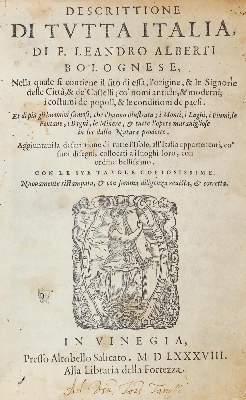 DESCRITTIONE
DI TVTTA ITALIA,
DI F. LEANDRO ALBERTI
BOLOGNESE,
Nella quale si contiene il sito di essa, l'origine, & le Signorie
delle Città, & de' Castelli; co' nomi antichi, & moderni;
i costumi de popoli, & le conditioni de paesi.
Et di più gli huomini famosi, che l'hanno illustrata; i Monti, i Laghi, i Fiumi, le
Fontane, i Bagni, le Minere, & tutte l'opere marauigliose
in lei dalla Natura prodotte.
Aggiuntaui la descrittione di tutte l'Isole, all'Italia appartenenti, co'
suoi disegni, collocati a i luoghi loro, con
ordine bellissimo.
CON LE SVE TAVOLE COPIOSISSIME.
Nuouamente ristampata, & con somma diligenza reuista, & corretta.
IN VINEGIA,
Presso Altobello Salicato. M D LXXXVIII.
Alla Libraria della Fortezza.